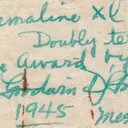 rmaline XL
Doubly te
e Award by
Goodwin
1945 Mes